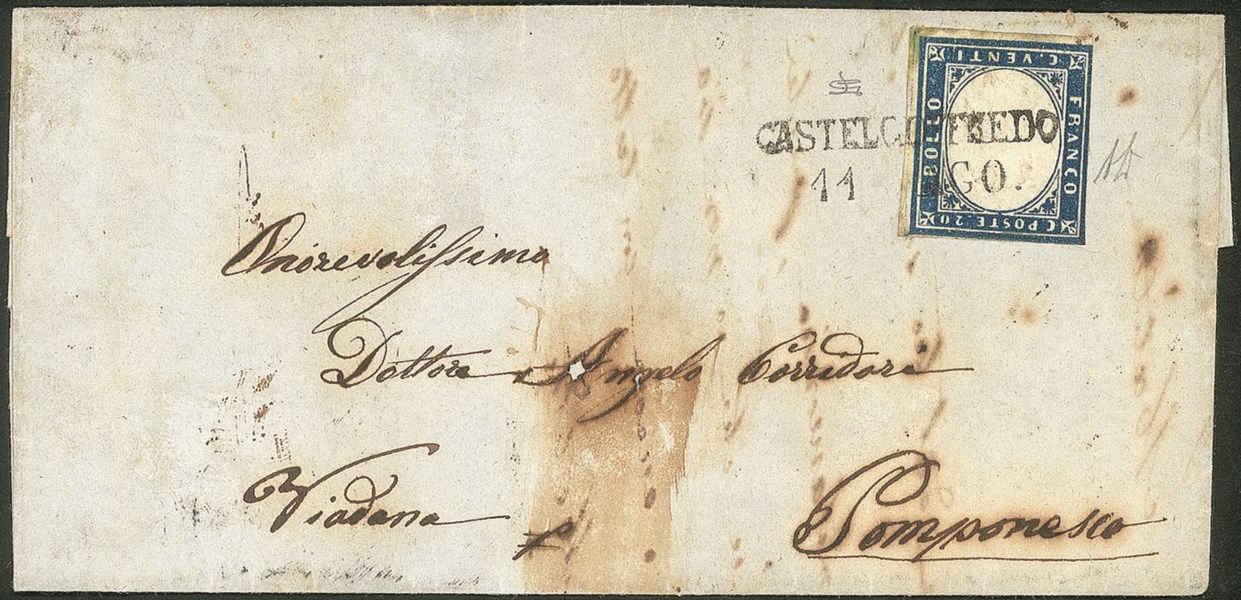 C. VENTI
FRANCO
BOLLO
C. POSTE. 20
CASTELGOFFREDO
11 AGO.
Onorevolissimo
Dottore Angelo Corridori
Viadana p
Pomponesco